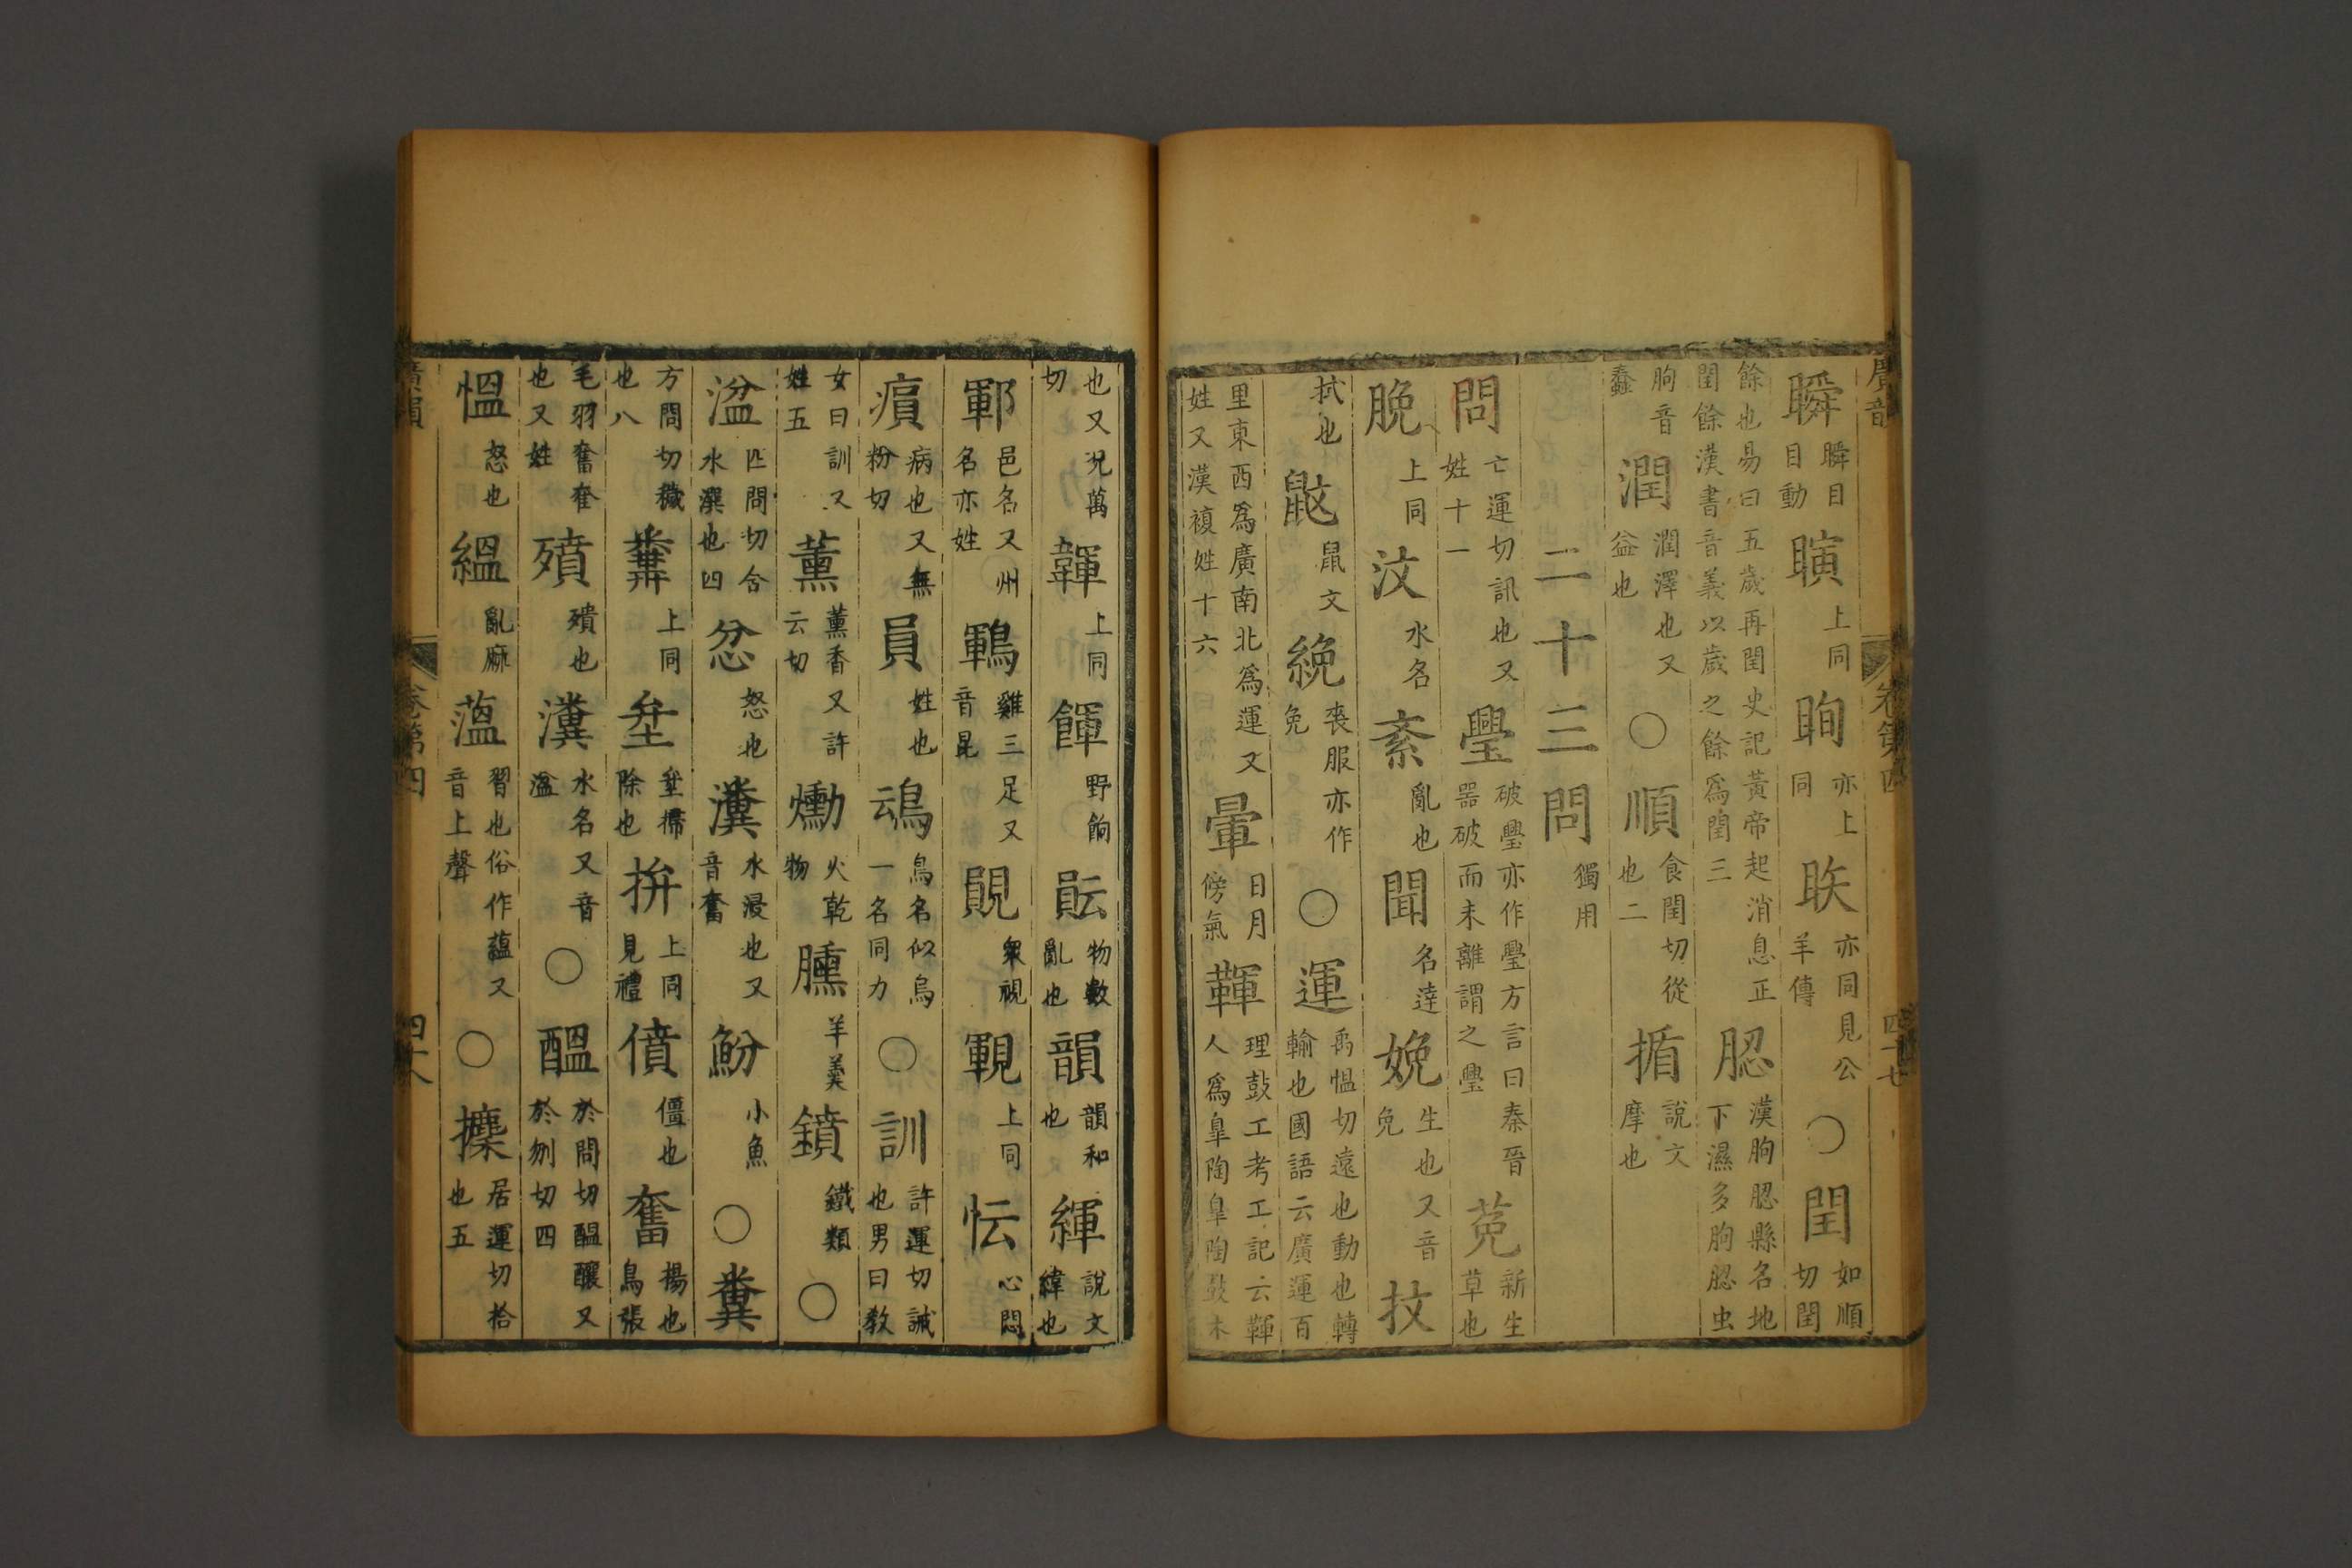 廣韻 卷第四 四十七
瞬 瞬目目動 瞚 上同 眴 亦上同 眣 亦同見公羊傳 ○ 閏 如順切閏
餘也易曰五歲再閏史記黃帝起消息正閏餘漢書音義以歲之餘爲閏三 䏰 漢朐䏰縣名地下濕多朐䏰虫
朐音蠢 潤 潤澤也又益也 ○ 順 食閏切從也二 揗 說文摩也
二十三問 獨用
問 亡運切訊也又姓十一 璺 破璺亦作璺方言曰秦晉器破而未離謂之璺 莬 新生草也
脕 上同 汶 水名 紊 亂也 聞 名達 娩 生也又音免 抆
拭也 鼤 鼠文 絻 喪服亦作免 ○ 運 禹愠切遠也動也轉輸也國語云廣運百
里東西爲廣南北爲運又姓又漢複姓十六 暈 日月傍氣 䩵 理鼓工考工記云䩵人爲皐陶皐陶鼓木
也又况萬切 韗 上同 餫 野餉 𧶊 物數亂也 韻 韻和也 緷 說文緯也
鄆 邑名又州名亦姓 鶤 雞三足又音昆 䚋 衆視 𧡡 上同 忶 心悶
㾓 病也又無粉切 員 姓也 䲰 鳥名似烏一名同力 ○ 訓 許運切誡也男曰教
女曰訓又姓五 薰 薰香又許云切 爋 火乾物 臐 羊羹 鐼 鐵類 ○
湓 匹問切含水潠也四 忿 怒也 瀵 水浸也又音奮 魵 小魚 ○ 糞
方問切穢也八 上同 坌掃除也 拚 上同見禮 僨 僵也 奮 揚也鳥張
毛羽奮奞也又姓 㱵 殨也 瀵 水名又音湓 ○ 醖 於問切醖釀又於刎切四
愠 怒也 緼 亂麻 薀 習也俗作蘊又音上聲 ○ 攈 居運切拾也五
廣韻 卷第四 四十八